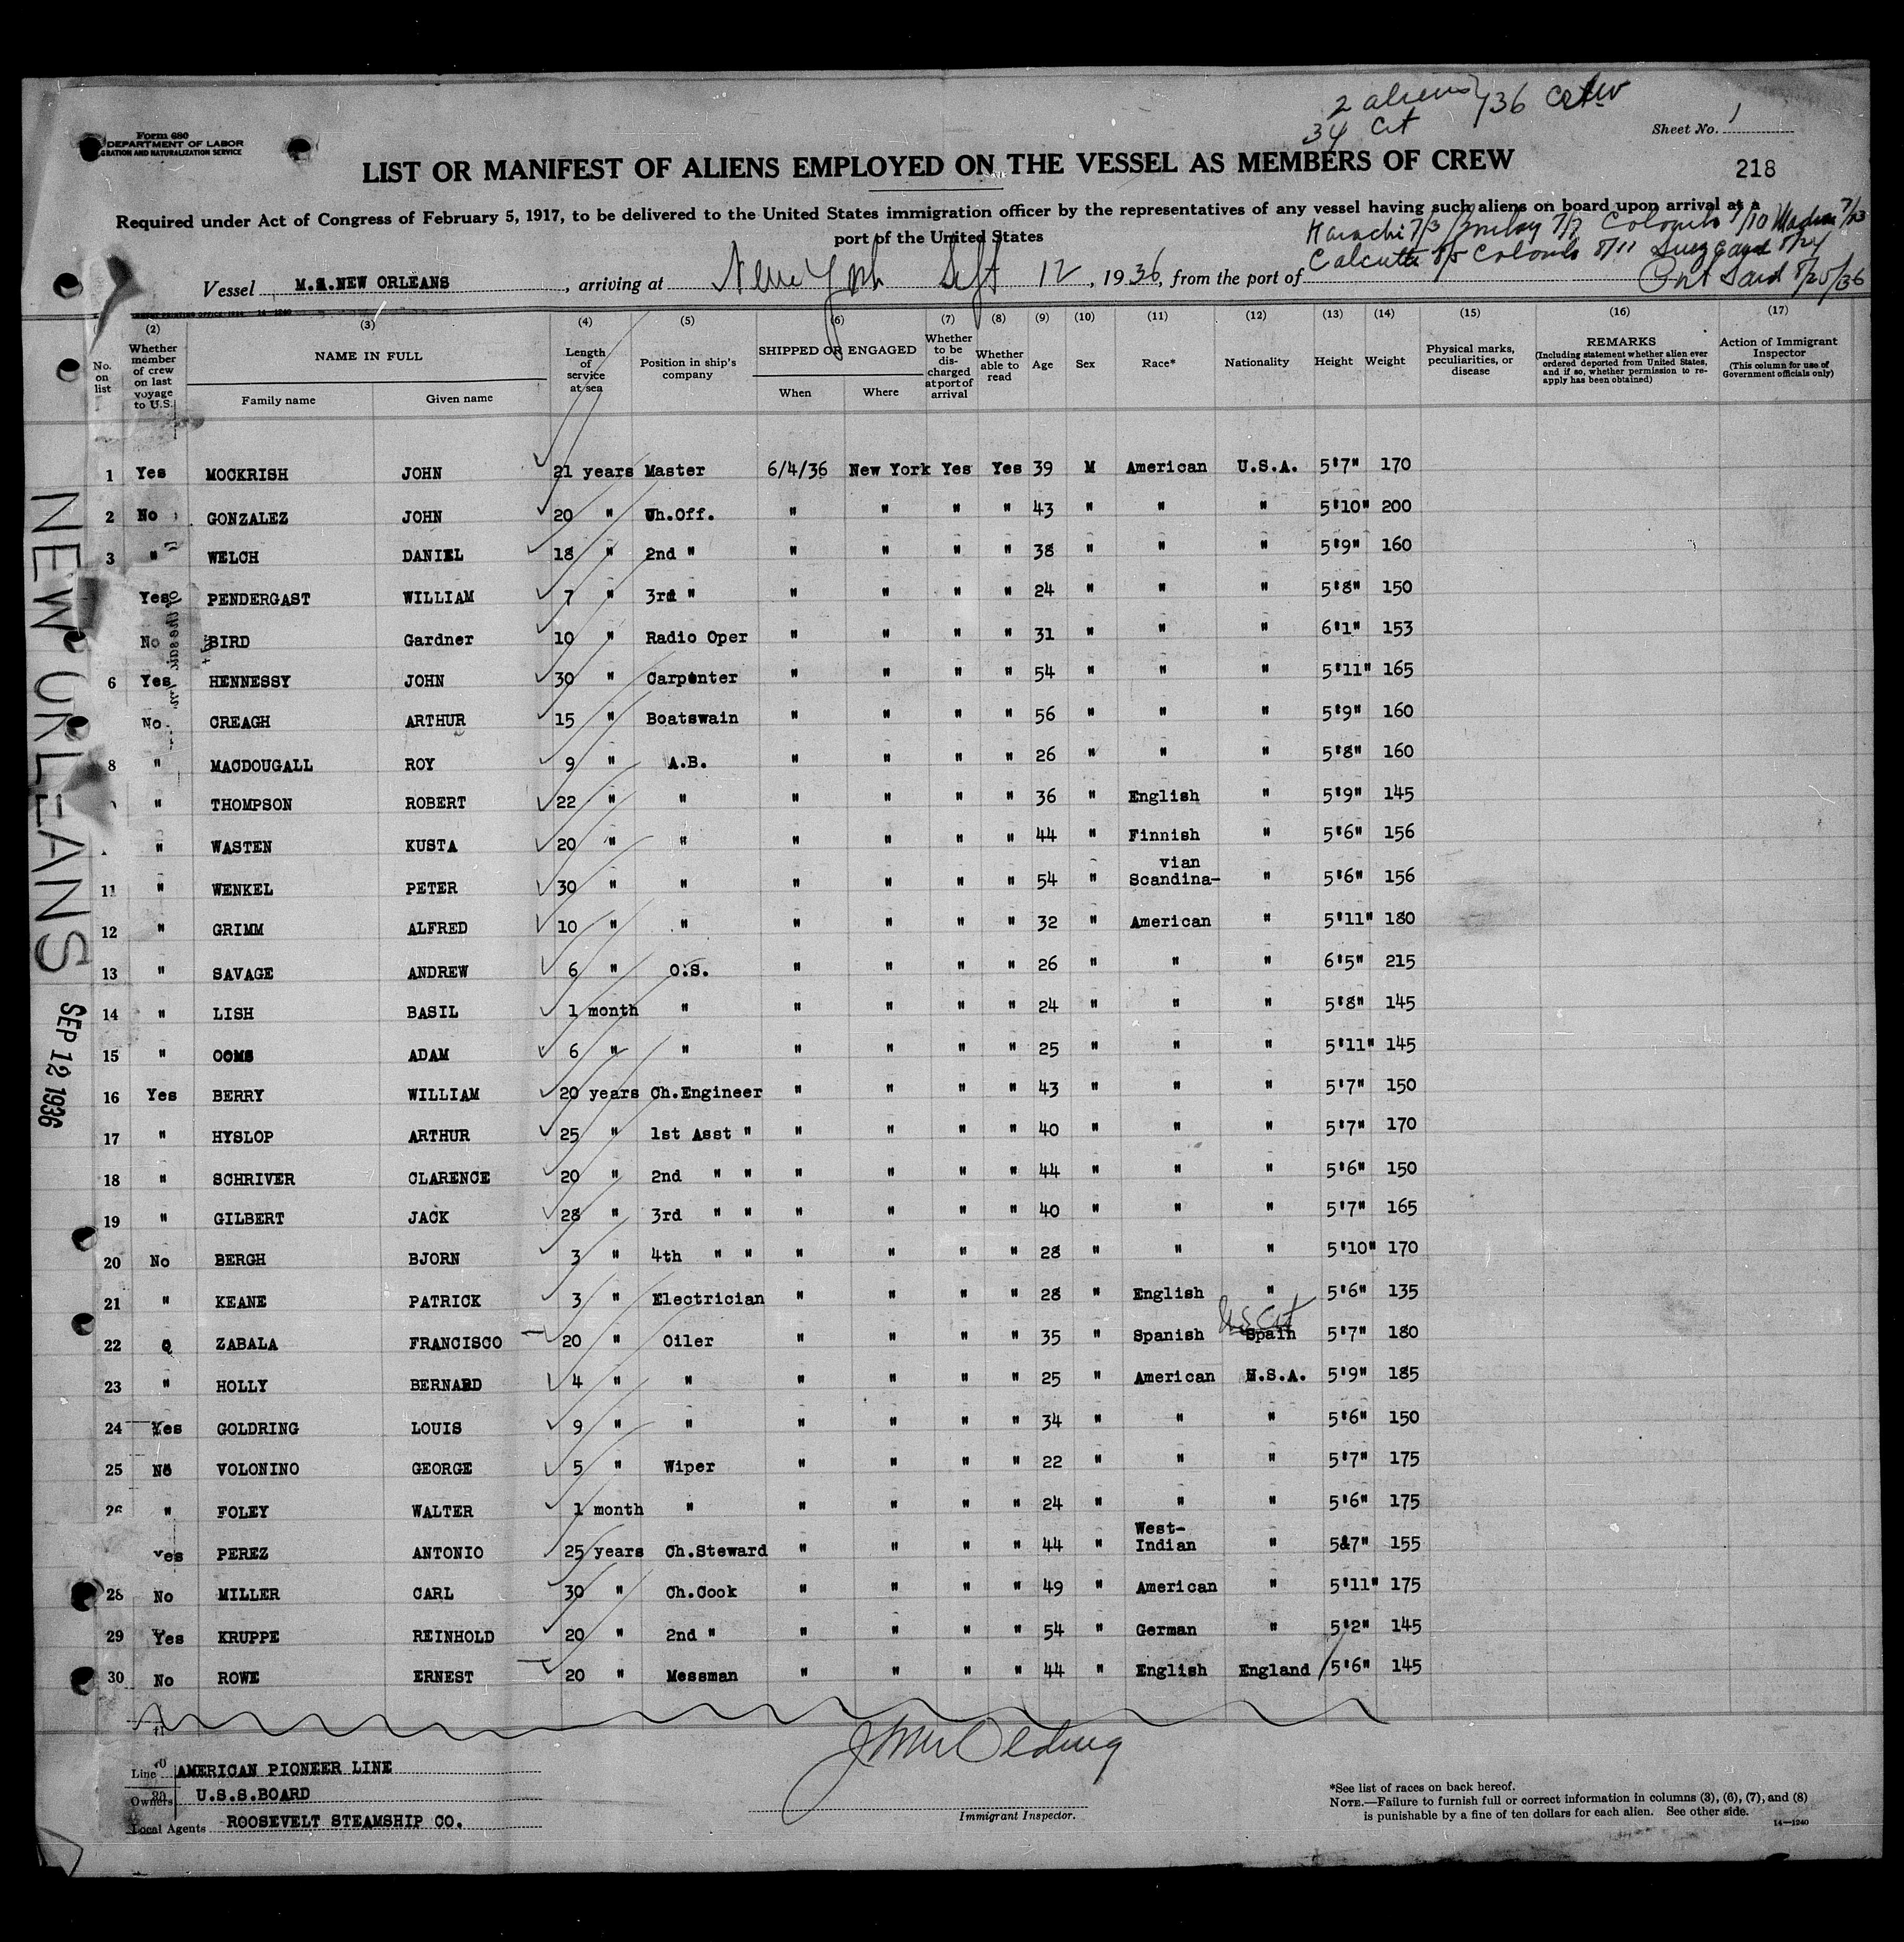 2 aliens } 36 crew
34 cit
Form 680
DEPARTMENT OF LABOR
GRATION AND NATURALIZATION SERVICE
Sheet No. 1
LIST OR MANIFEST OF ALIENS EMPLOYED ON THE VESSEL AS MEMBERS OF CREW
218
Required under Act of Congress of February 5, 1917, to be delivered to the United States immigration officer by the representatives of any vessel having such aliens on board upon arrival at a
port of the United States
Karachi 7/3 Bombay 7/7 Colombo 7/10 Madras 7/23
Calcutta 8/5 Colombo 8/11 Suez 8/24
Port Said 8/25/36
Vessel M.S.NEW ORLEANS, arriving at New York Sept 12, 1936, from the port of
(2) (3) (4) (5) (6) (7) (8) (9) (10) (11) (12) (13) (14) (15) (16) (17)
No. on list
Whether member of crew on last voyage to U.S.
NAME IN FULL
Family name
Given name
Length of service at sea
Position in ship's company
SHIPPED OR ENGAGED
When
Where
Whether to be discharged at port of arrival
Whether able to read
Age
Sex
Race*
Nationality
Height
Weight
Physical marks, peculiarities, or disease
REMARKS
(Including statement whether alien ever ordered deported from United States, and if so, whether permission to re-apply has been obtained)
Action of Immigrant Inspector
(This column for use of Government officials only)
1 Yes MOCKRISH JOHN 21 years Master 6/4/36 New York Yes Yes 39 M American U.S.A. 5'7" 170
2 No GONZALEZ JOHN 20 " Ch.Off. " " " " 43 " " " 5'10" 200
3 " WELCH DANIEL 18 " 2nd " " " " " 38 " " " 5'9" 160
Yes PENDERGAST WILLIAM 7 " 3rd " " " " " 24 " " " 5'8" 150
No BIRD Gardner 10 " Radio Oper " " " " 31 " " " 6'1" 153
6 Yes HENNESSY JOHN 30 " Carpenter " " " " 54 " " " 5'11" 165
No. CREAGH ARTHUR 15 " Boatswain " " " " 56 " " " 5'9" 160
8 " MACDOUGALL ROY 9 " A.B. " " " " 26 " " " 5'8" 160
" THOMPSON ROBERT 22 " " " " " " 36 " English " 5'9" 145
" WASTEN KUSTA 20 " " " " " " 44 " Finnish " 5'6" 156
vian
11 " WENKEL PETER 30 " " " " " " 54 " Scandina- " 5'6" 156
12 " GRIMM ALFRED 10 " " " " " " 32 " American " 5'11" 180
13 " SAVAGE ANDREW 6 " O.S. " " " " 26 " " " 6'5" 215
14 " LISH BASIL 1 month " " " " " 24 " " " 5'8" 145
15 " OOMS ADAM 6 " " " " " " 25 " " " 5'11" 145
16 Yes BERRY WILLIAM 20 years Ch.Engineer " " " " 43 " " " 5'7" 150
17 " HYSLOP ARTHUR 25 " 1st Asst " " " " " 40 " " " 5'7" 170
18 " SCHRIVER CLARENCE 20 " 2nd " " " " " " 44 " " " 5'6" 150
19 " GILBERT JACK 28 " 3rd " " " " " " 40 " " " 5'7" 165
20 No BERGH BJORN 3 " 4th " " " " " " 28 " " " 5'10" 170
21 " KEANE PATRICK 3 " Electrician " " " " 28 " English " 5'6" 135
US Cit
22 ZABALA FRANCISCO 20 " Oiler " " " " 35 " Spanish Spain 5'7" 180
23 " HOLLY BERNARD 4 " " " " " " 25 " American U.S.A. 5'9" 185
24 Yes GOLDRING LOUIS 9 " " " " " " 34 " " " 5'6" 150
25 No VOLONINO GEORGE 5 " Wiper " " " " 22 " " " 5'7" 175
26 " FOLEY WALTER 1 month " " " " " 24 " " " 5'6" 175
West-
Yes PEREZ ANTONIO 25 years Ch.Steward " " " " 44 " Indian " 5&7" 155
28 No MILLER CARL 30 " Ch.Cook " " " " 49 " American " 5'11" 175
29 Yes KRUPPE REINHOLD 20 " 2nd " " " " " 54 " German " 5'2" 145
30 No ROWE ERNEST 20 " Messman " " " " 44 " English England 5'6" 145
NEW ORLEANS
SEP 12 1936
Line AMERICAN PIONEER LINE
Owners U.S.S.BOARD
Local Agents ROOSEVELT STEAMSHIP CO.
Immigrant Inspector.
*See list of races on back hereof.
NOTE.—Failure to furnish full or correct information in columns (3), (6), (7), and (8)
is punishable by a fine of ten dollars for each alien. See other side.
14—1240